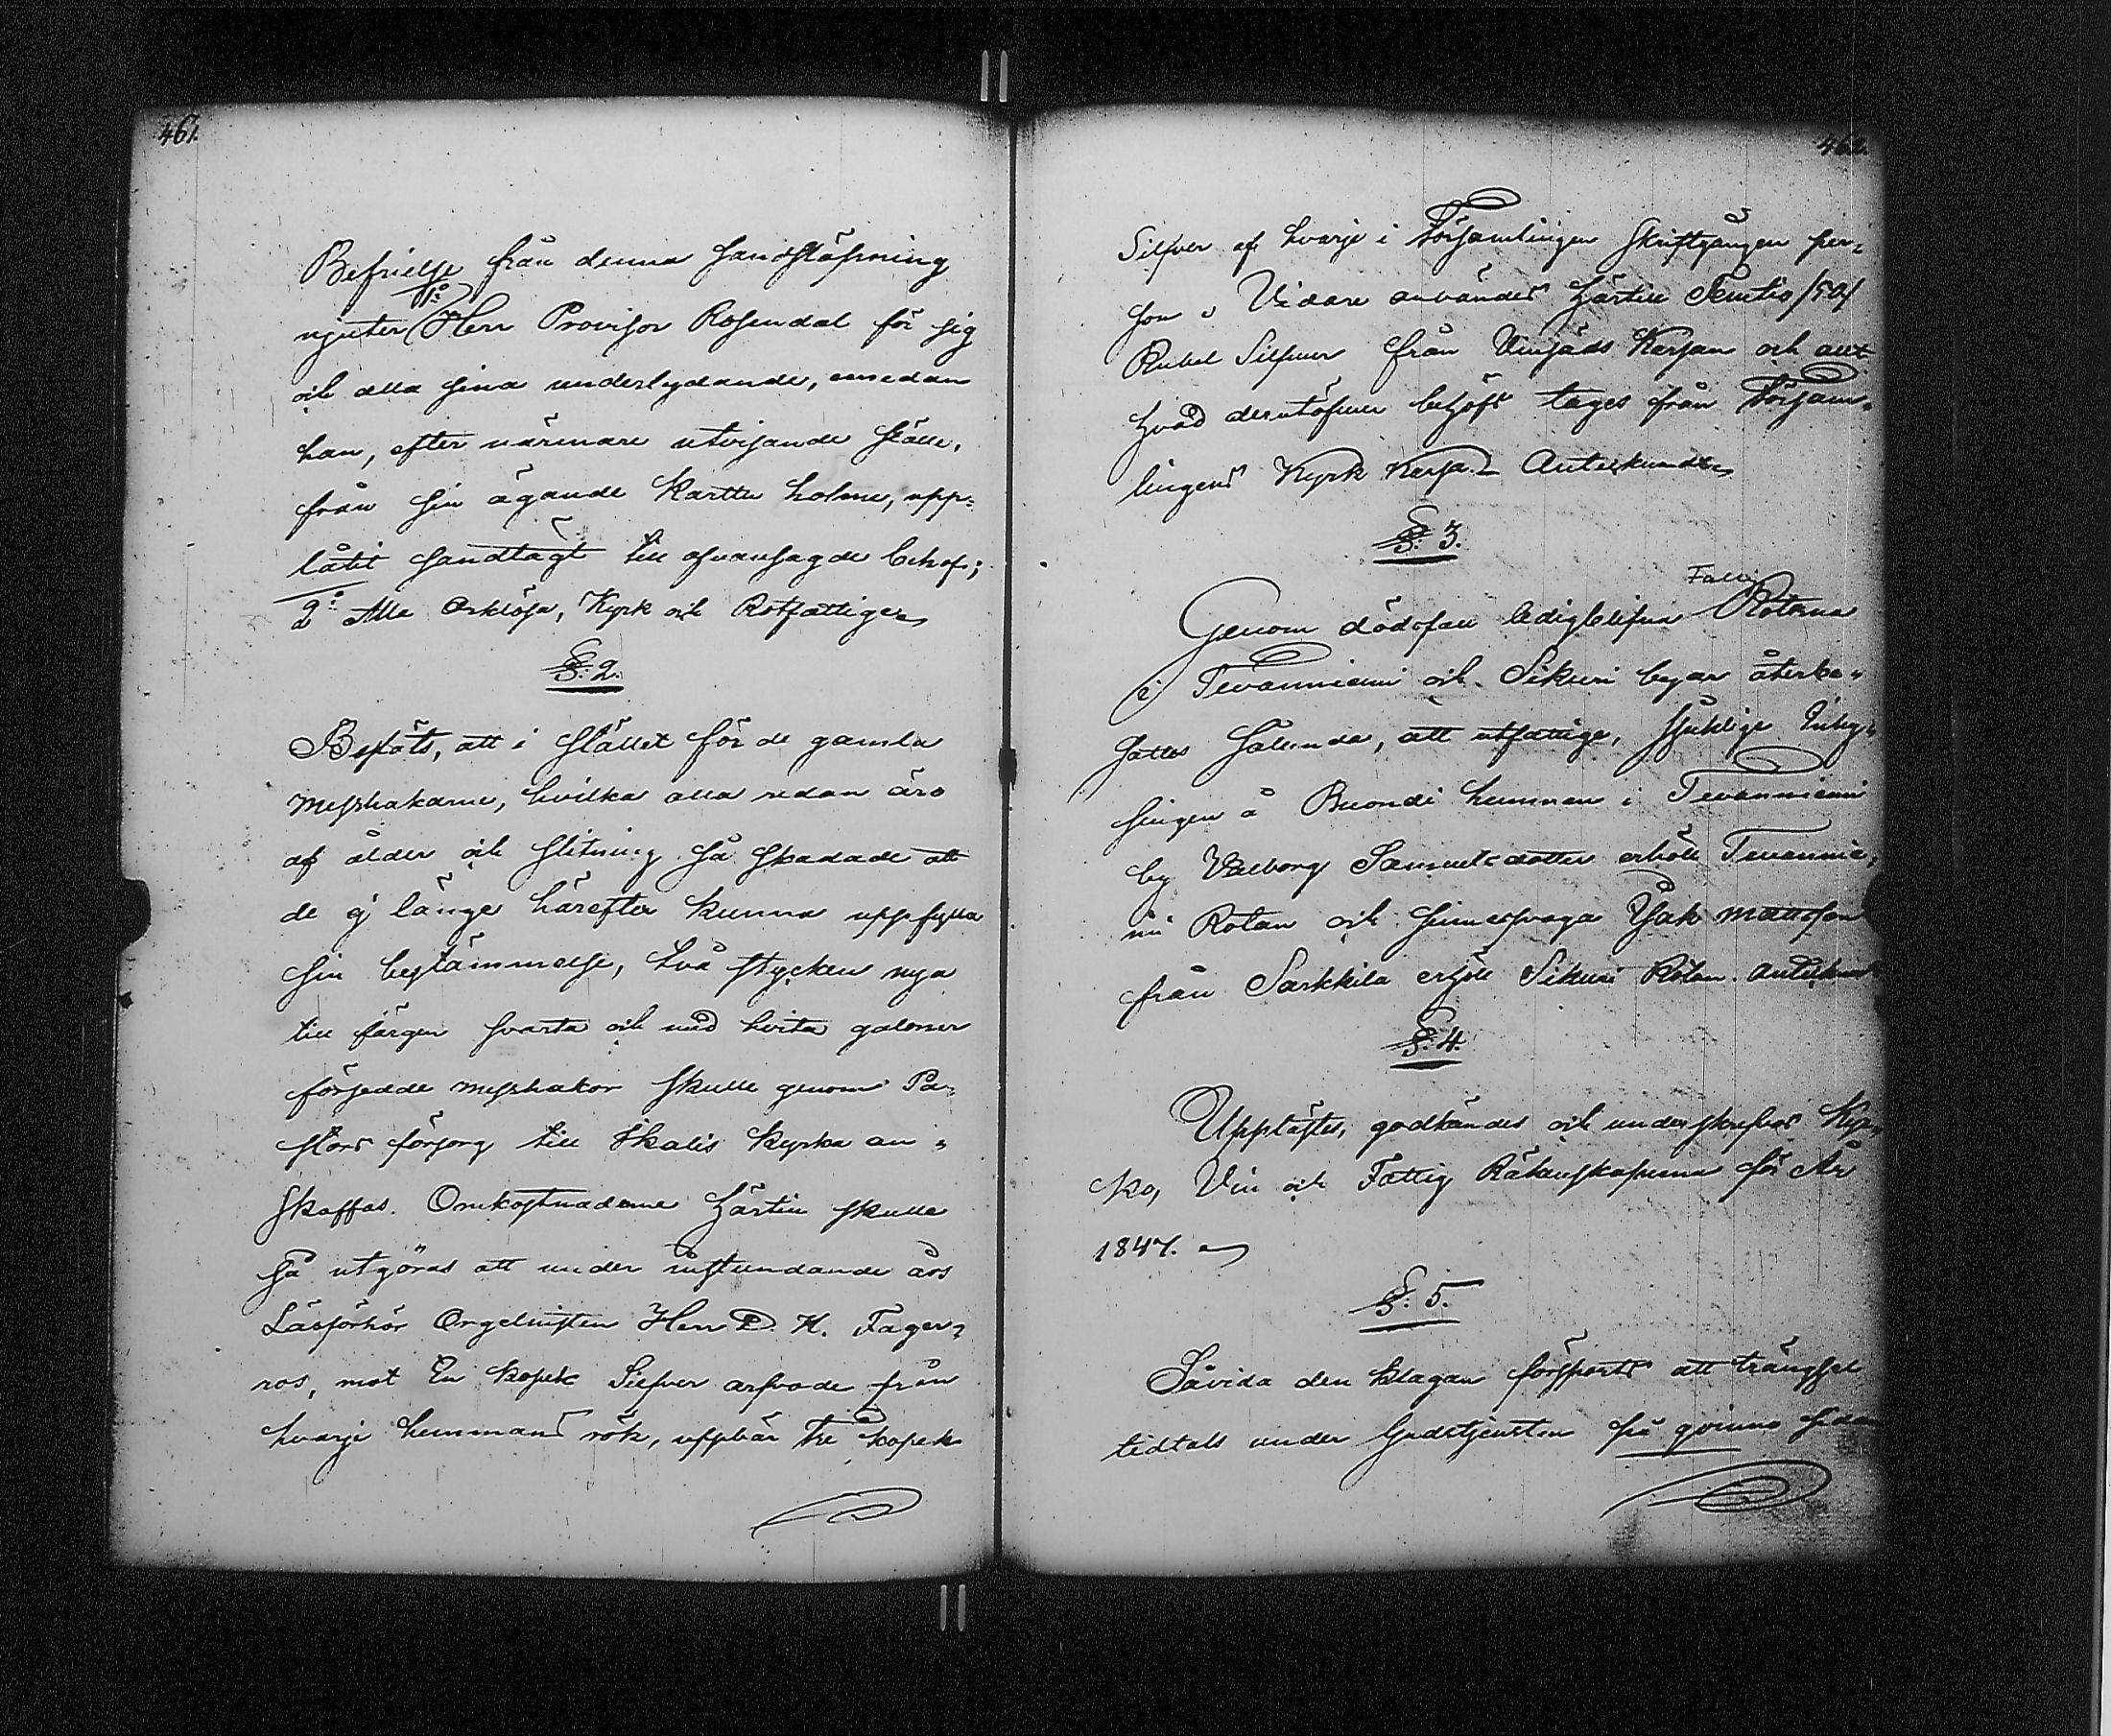 461.
Befrielse från denna sandsläpning
1:o
njuter Herr Provisor Rosendal för sig
och alla sina underlydande, emedan
han, efter närmare utvisande ställe,
från sin ägande Karttu holme, upp-
låtit sandtägt till ofvansagde behof;
2:o Alla Orklösa, Kyrk och Rotfattige
§. 2.
Beslöts, att i stället för de gamla
Messhakarne, hvilka alla redan äro
af ålder och slitning så skadade att
de ej länge härefter kunna uppfylla
sin bestämmelse, två stycken nya
till färgen svarta och med hvita galoner
försedde messhakor skulle genom Pa-
stors försorg till Ikalis kyrka an-
skaffas. Omkostnaderne härtill skulle
så utgöras att under instundande års
Läsförhör Orgelnisten Herr D. H. Fager-
ros, mot En kopek Silfver arfvode från
hvarje hemmans rök, uppbär Tre kopek
462.
Silfver af hvarje i Församlingen skriftgången per-
son. Vidare användes härtill Femtio /50/
Rubel Silfver från Vinsäds Kassan och allt
hvad derutöfver behöfs tages från Försam-
lingens Kyrk Kassa. Antecknades
§. 3.
Fattig
Genom dödsfall ledigblifna Rotarna
i Tevanniemi och Sikuri byar återbe-
sattes sålunda, att utfattige, sjuklige Inhy-
singen å Buondi hemman i Tevanniemi
by Valborg Samuelsdotter erhöll Tevannie-
mi Rotan och sinnessvaga Isak Mattsson
från Sarkkila erhöll Sikuri Rotan.
§. 4.
Upplästes, godkändes och underskrefvos Kyr-
ko, Vin och Fattig Räkenskaperna för År
1847.
§. 5.
Såvida den klagan försports att trängsel
tidtals under Gudstjensten på qvinno sidan